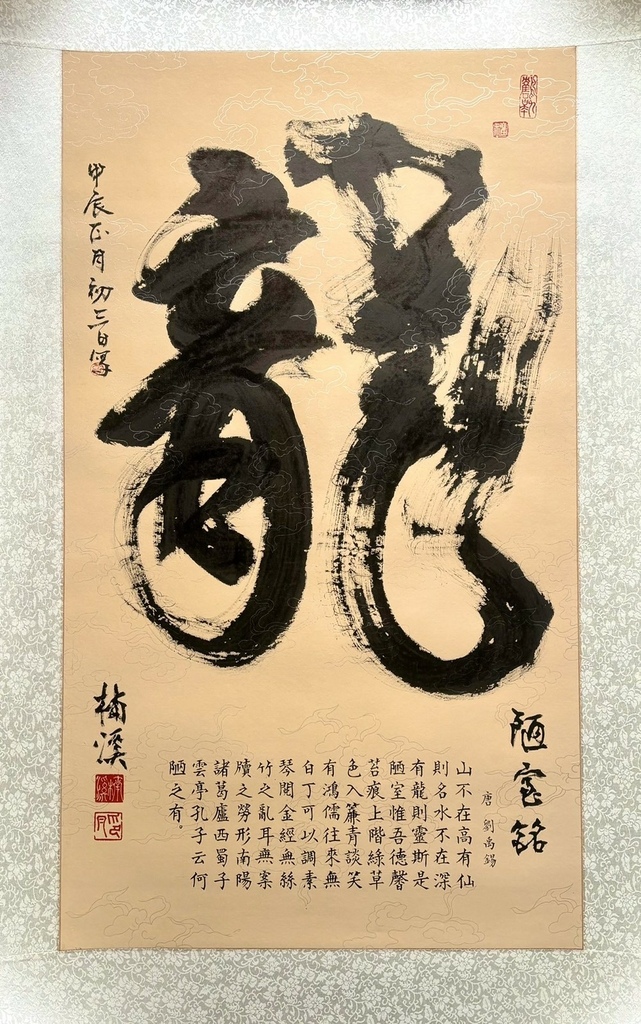 龍
陋室銘
唐 劉禹錫
山不在高有仙
則名水不在深
有龍則靈斯是
陋室惟吾德馨
苔痕上階綠草
色入簾青談笑
有鴻儒往來無
白丁可以調素
琴閱金經無絲
竹之亂耳無案
牘之勞形南陽
諸葛廬西蜀子
雲亭孔子云何
陋之有。
甲辰正月初三日寫
楠溪